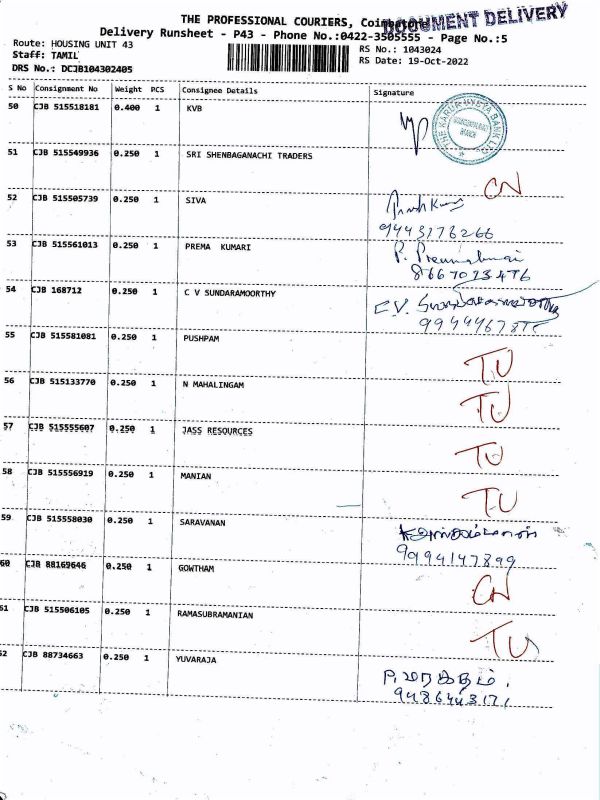 THE PROFESSIONAL COURIERS, Coimbatore
DOCUMENT DELIVERY
Delivery Runsheet - P43 - Phone No.:0422-3505555 - Page No.:5
Route: HOUSING UNIT 43
RS No.: 1043024
Staff: TAMIL
RS Date: 19-Oct-2022
DRS No.: DCJB104302405
S No Consignment No Weight PCS Consignee Details Signature
50 CJB 515518181 0.400 1 KVB
THE KARUR VYSYA BANK LTD
51 CJB 515549936 0.250 1 SRI SHENBAGANACHI TRADERS CN
52 CJB 515505739 0.250 1 SIVA
9443178266
53 CJB 515561013 0.250 1 PREMA KUMARI P. Premakumari
8667023476
54 CJB 168712 0.250 1 C V SUNDARAMOORTHY C.V.
55 CJB 515581081 0.250 1 PUSHPAM TU
56 CJB 515133770 0.250 1 N MAHALINGAM TU
57 CJB 515555607 0.250 1 JASS RESOURCES TU
58 CJB 515556919 0.250 1 MANIAN TU
59 CJB 515558030 0.250 1 SARAVANAN
9994147899
60 CJB 88169646 0.250 1 GOWTHAM CN
61 CJB 515506105 0.250 1 RAMASUBRAMANIAN TU
62 CJB 88734663 0.250 1 YUVARAJA P. மரகதம்.
9486443171